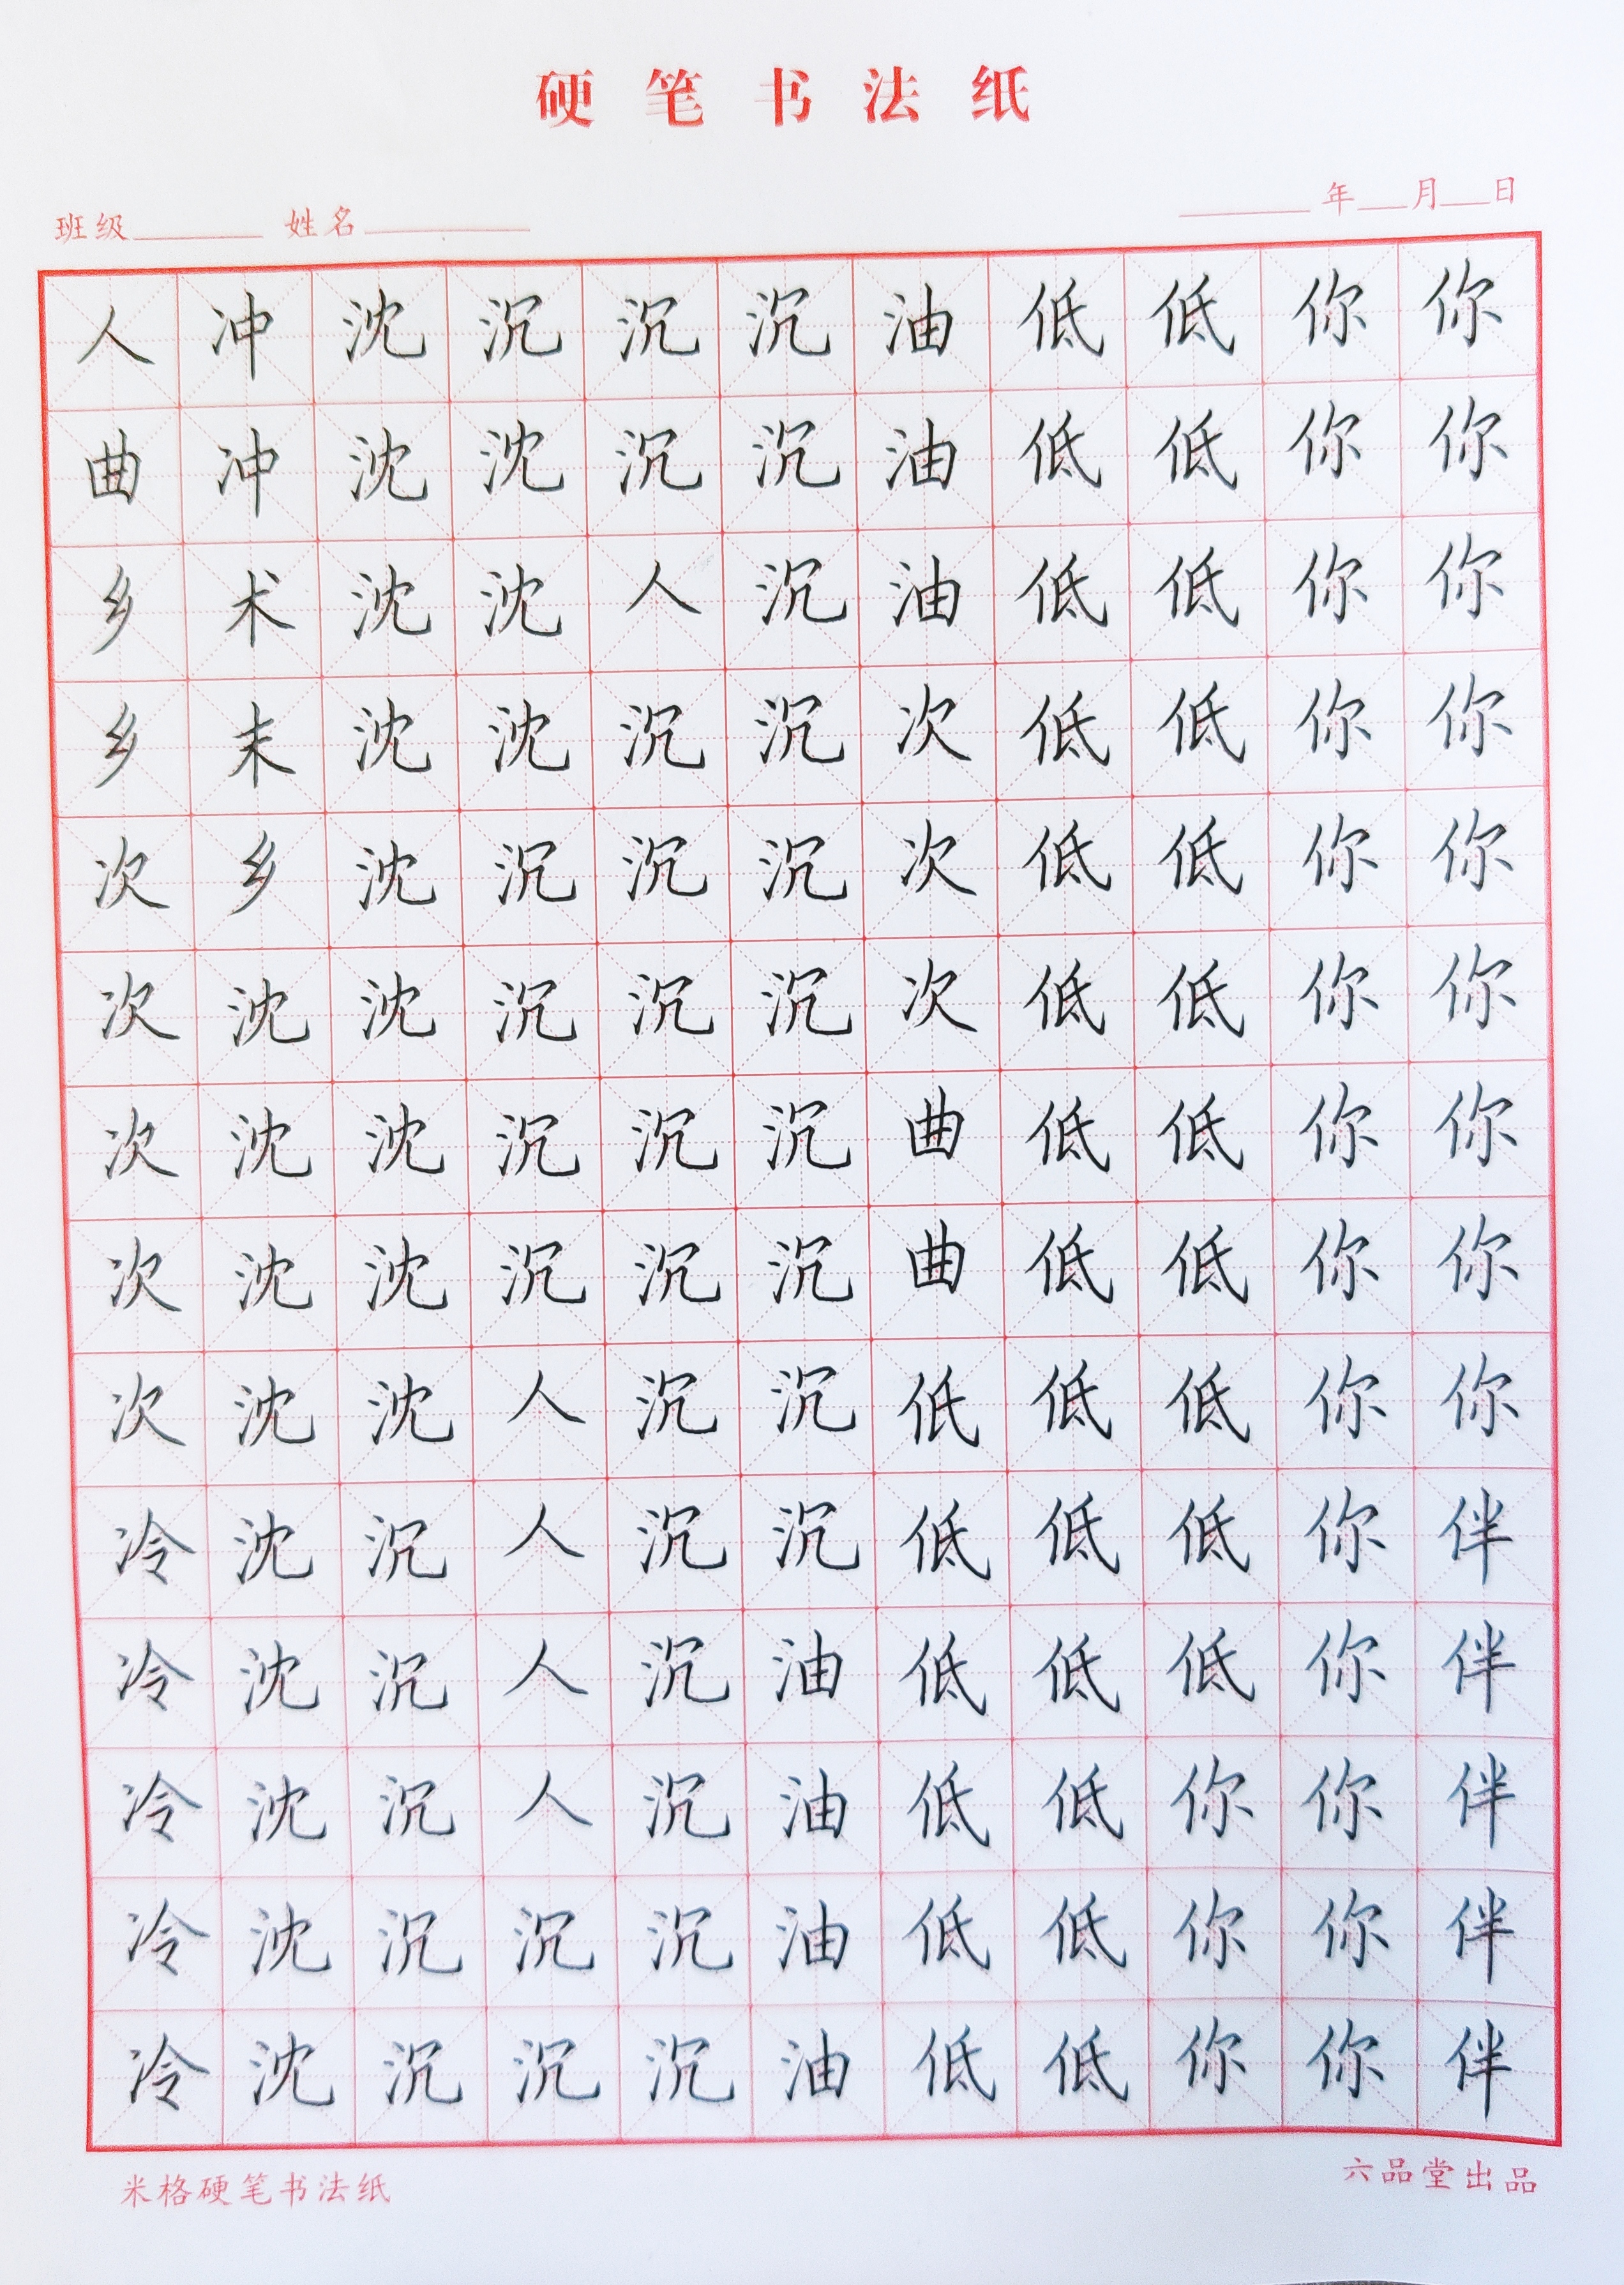 硬笔书法纸
班级 姓名 年 月 日
人冲沈沉沉沉油低低你你
曲冲沈沈沉沉油低低你你
乡术沈沈人沉油低低你你
乡末沈沈沉沉次低低你你
次乡沈沉沉沉次低低你你
次沈沈沉沉沉次低低你你
次沈沈沉沉沉曲低低你你
次沈沈沉沉沉曲低低你你
次沈沈人沉沉低低低你你
冷沈沉人沉沉低低低你伴
冷沈沉人沉油低低低你伴
冷沈沉人沉油低低你你伴
冷沈沉沉沉油低低你你伴
冷沈沉沉沉油低低你你伴
米格硬笔书法纸 六品堂出品